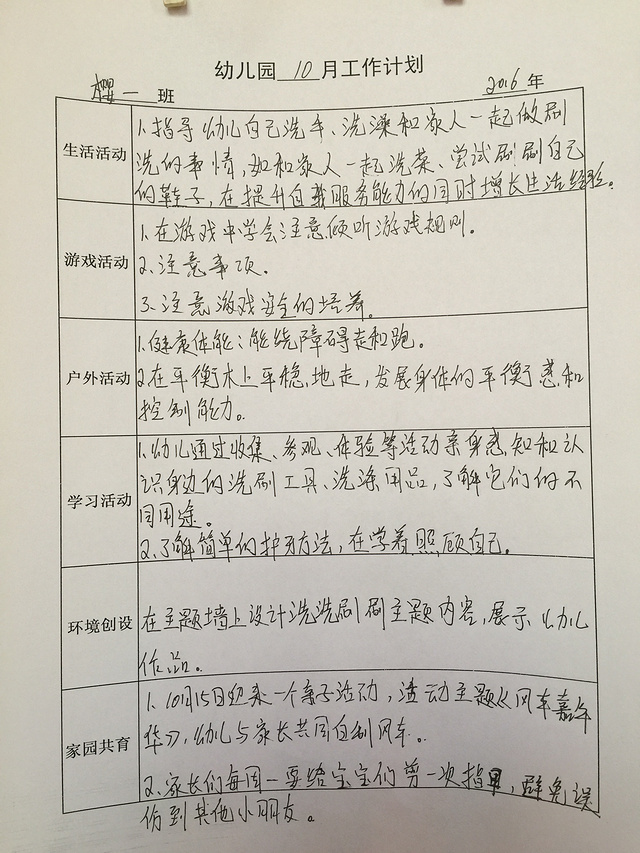 幼儿园 10 月工作计划
樱一 班 2016 年
生活活动
1.指导幼儿自己洗手、洗澡和家人一起做刷
洗的事情,如和家人一起洗菜、尝试刷刷自己
的鞋子,在提升自我服务能力的同时增长生活经验。
游戏活动
1.在游戏中学会注意倾听游戏规则。
2.注意事项。
3.注意游戏安全的培养。
户外活动
1.健康体能:能绕障碍走和跑。
2.在平衡木上平稳地走,发展身体的平衡感和
控制能力。
学习活动
1.幼儿通过收集、参观、体验等活动亲身感知和认
识身边的洗刷工具、洗涤用品,了解它们的不
同用途。
2.了解简单的护牙方法,在学着照顾自己。
环境创设
在主题墙上设计洗洗刷刷主题内容,展示幼儿
作品。
家园共育
1.10月15日迎来一个亲子活动,活动主题《风车嘉年
华》,幼儿与家长共同自制风车。
2.家长们每周一要给宝宝们剪一次指甲,避免误
伤到其他小朋友。